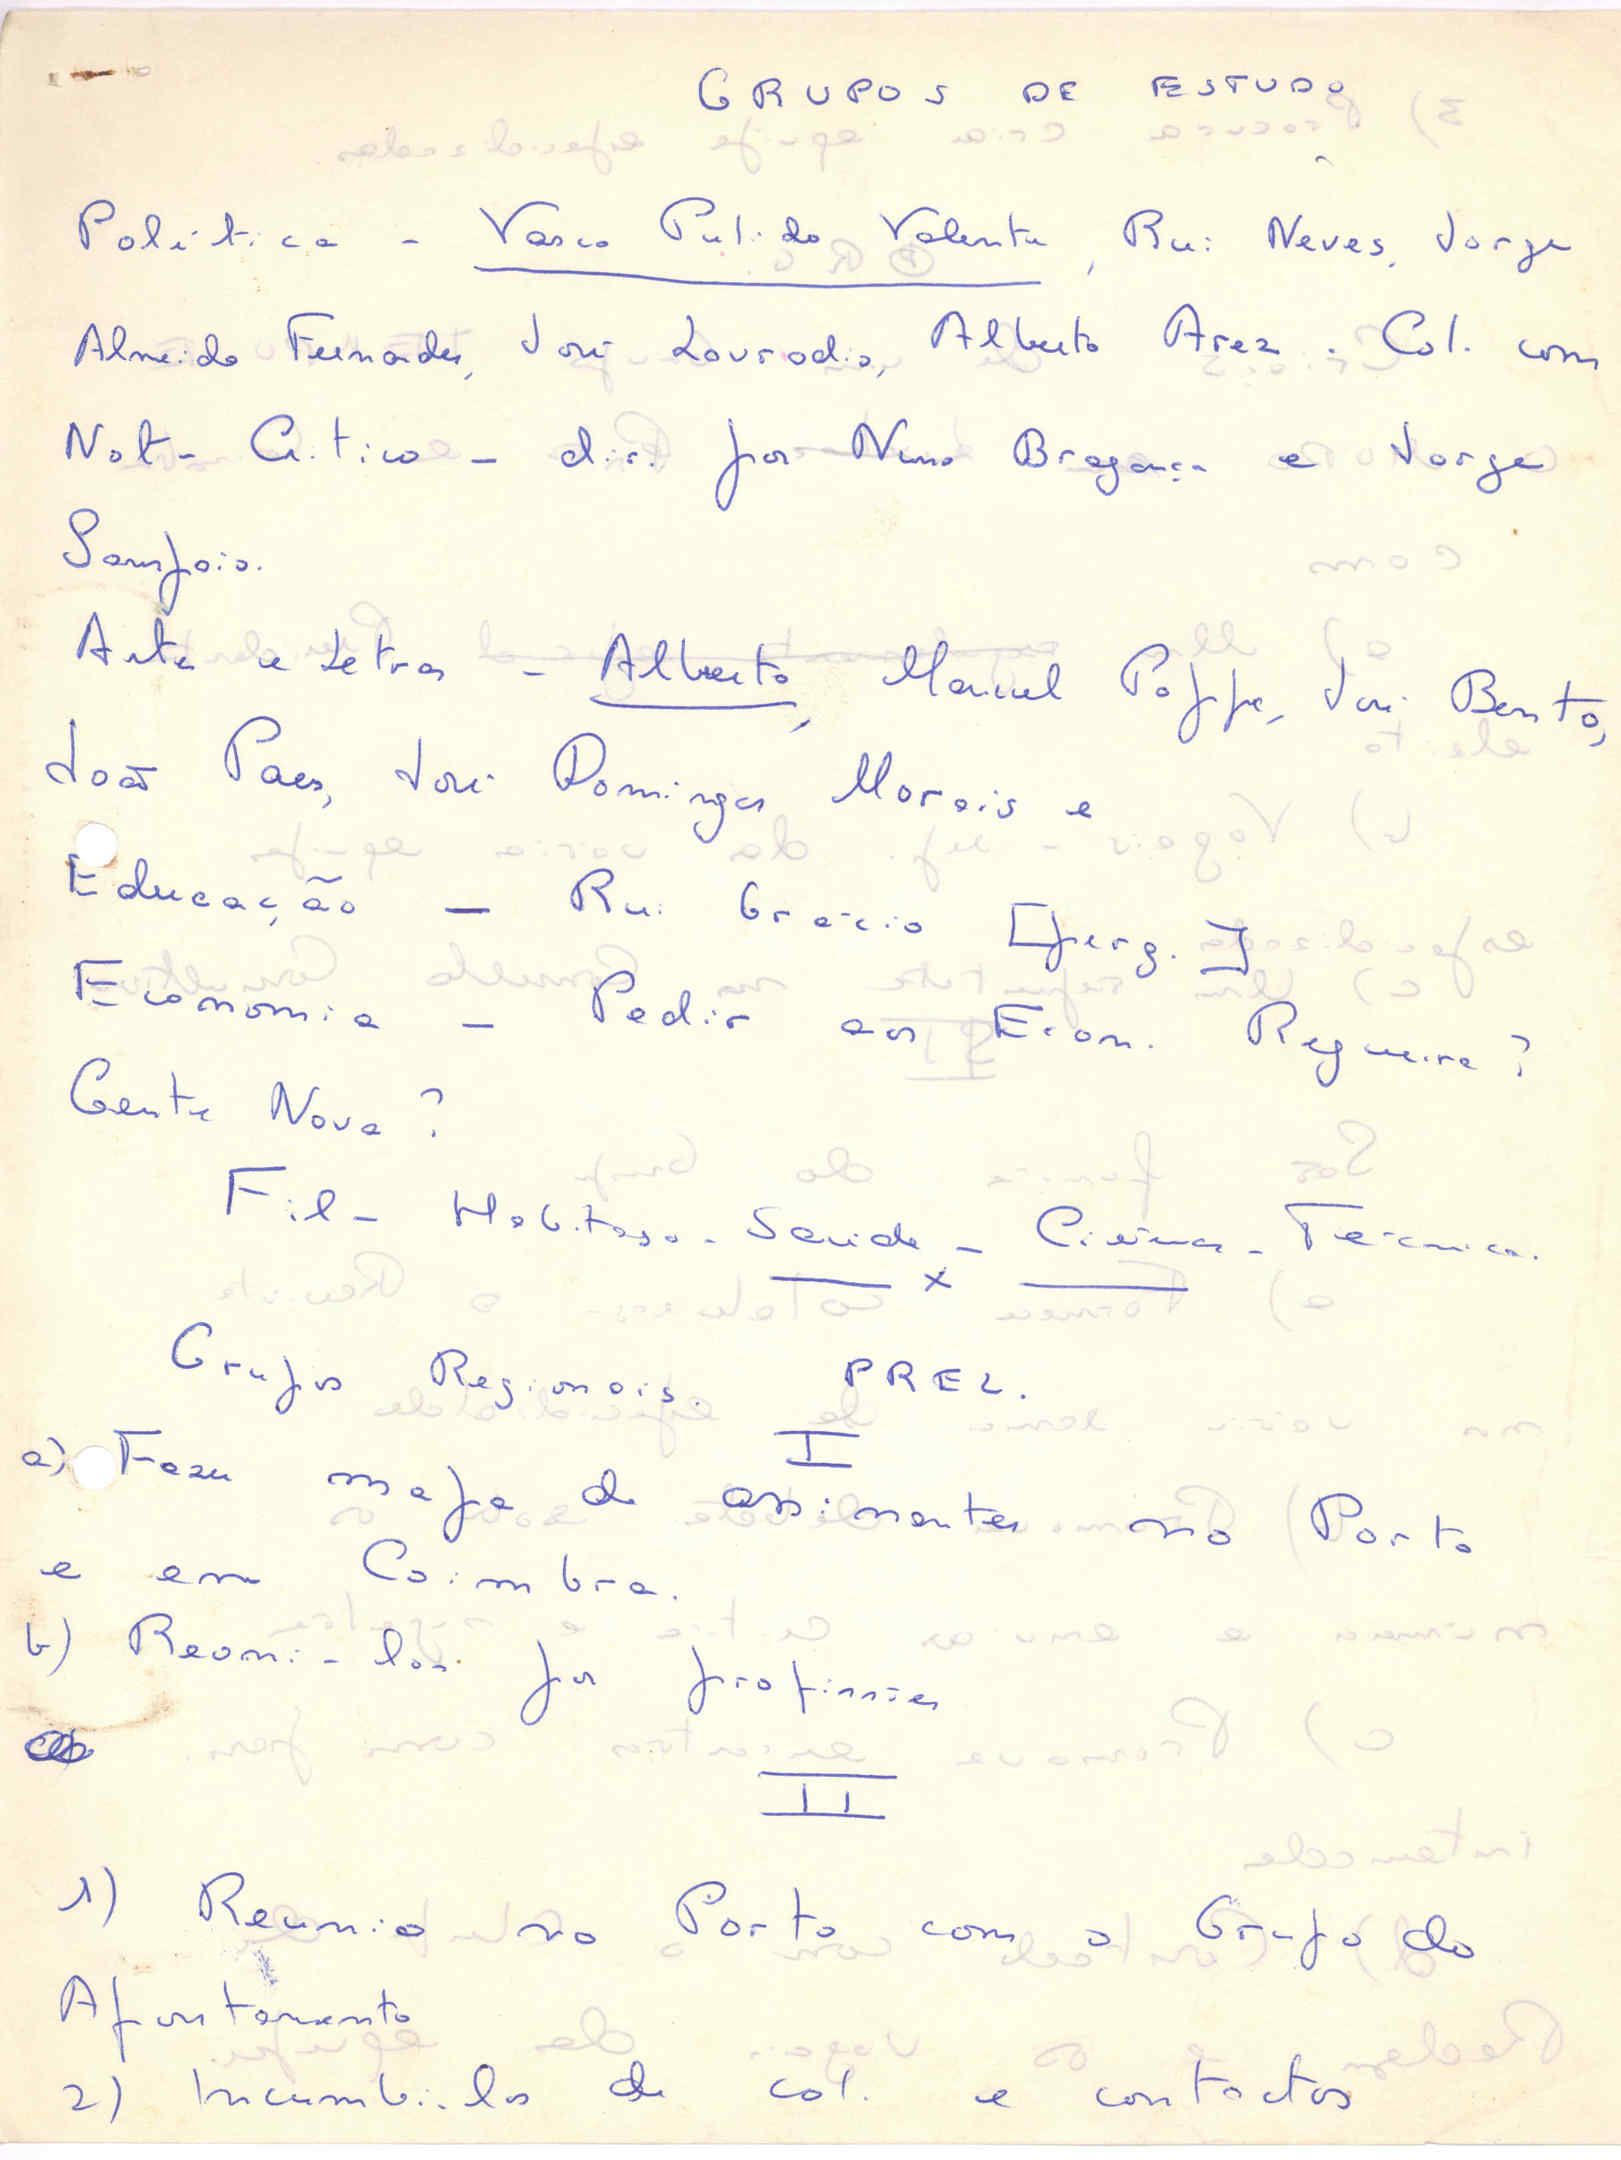 GRUPOS DE ESTUDO
Política - Vasco Pulido Valente, Rui Neves, Jorge
Almeida Fernandes, José Lourodio, Alberto Arez. Col. com
Not - Critico - dir. por Nuno Bragança e Jorge
Sampaio.
Arte e Letras - Alberto, Manuel Poppe, José Bento,
João Paes, José Domingos Morais e
Educação - Rui Grácio [perg.]
Economia - Pedir aos Econ. Regueira?
Gente Nova?
Fil - Habitaso - Saúde - Ciência - Técnica.
x
Grupos Regionais. PREL.
I
a) Fazer mapa de assinantes no Porto
e em Coimbra.
b) Reuni-los por profissões
II
1) Reunião no Porto com o Grupo do
Apontamento
2) Incumbi-los de col. e contactos